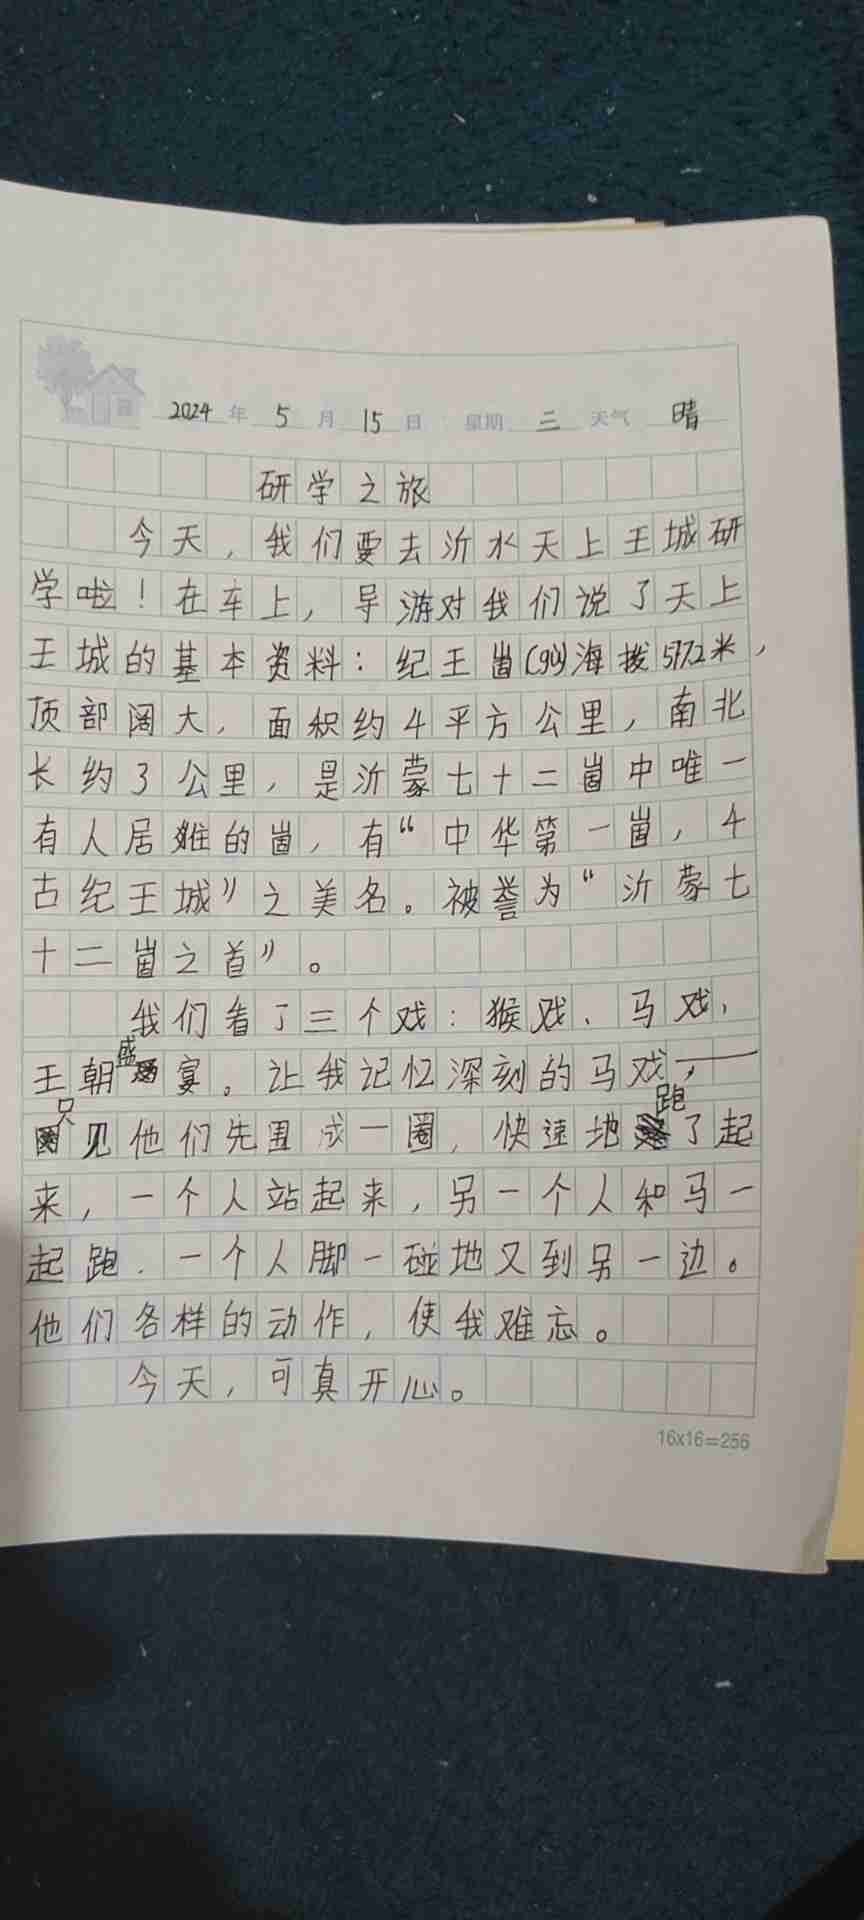 2024 年 5 月 15 日 星期 三 天气 晴
研学之旅
今天，我们要去沂水天上王城研
学啦！在车上，导游对我们说了天上
王城的基本资料：纪王崮(gù)海拨577.2米，
顶部阔大，面积约4平方公里，南北
长约3公里，是沂蒙七十二崮中唯一
有人居难的崮，有“中华第一崮，千
古纪王城”之美名。被誉为“沂蒙七
十二崮之首”。
我们看了三个戏：猴戏、马戏，
王朝盛宴。让我记忆深刻的马戏，——
只见他们先围成一圈，快速地跑了起
来，一个人站起来，另一个人和马一
起跑．一个人脚一碰地又到另一边。
他们各样的动作，使我难忘。
今天，可真开心。
16x16=256